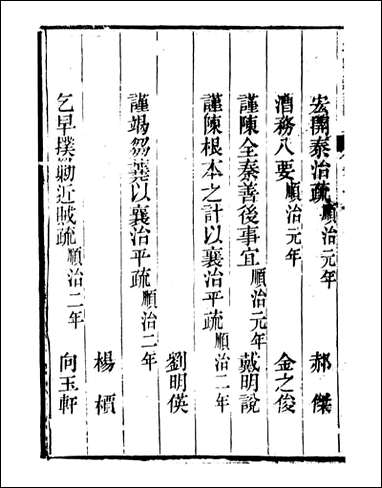 宏開泰治疏 順治元年 郝傑
酒務八要 順治元年 金之俊
謹陳全秦善後事宜 順治元年 戴明說
謹陳根本之計以襄治平疏 順治二年
劉明偀
謹竭芻蕘以襄治平疏 順治二年
楊櫃
乞早撲勦近賊疏 順治二年 向玉軒